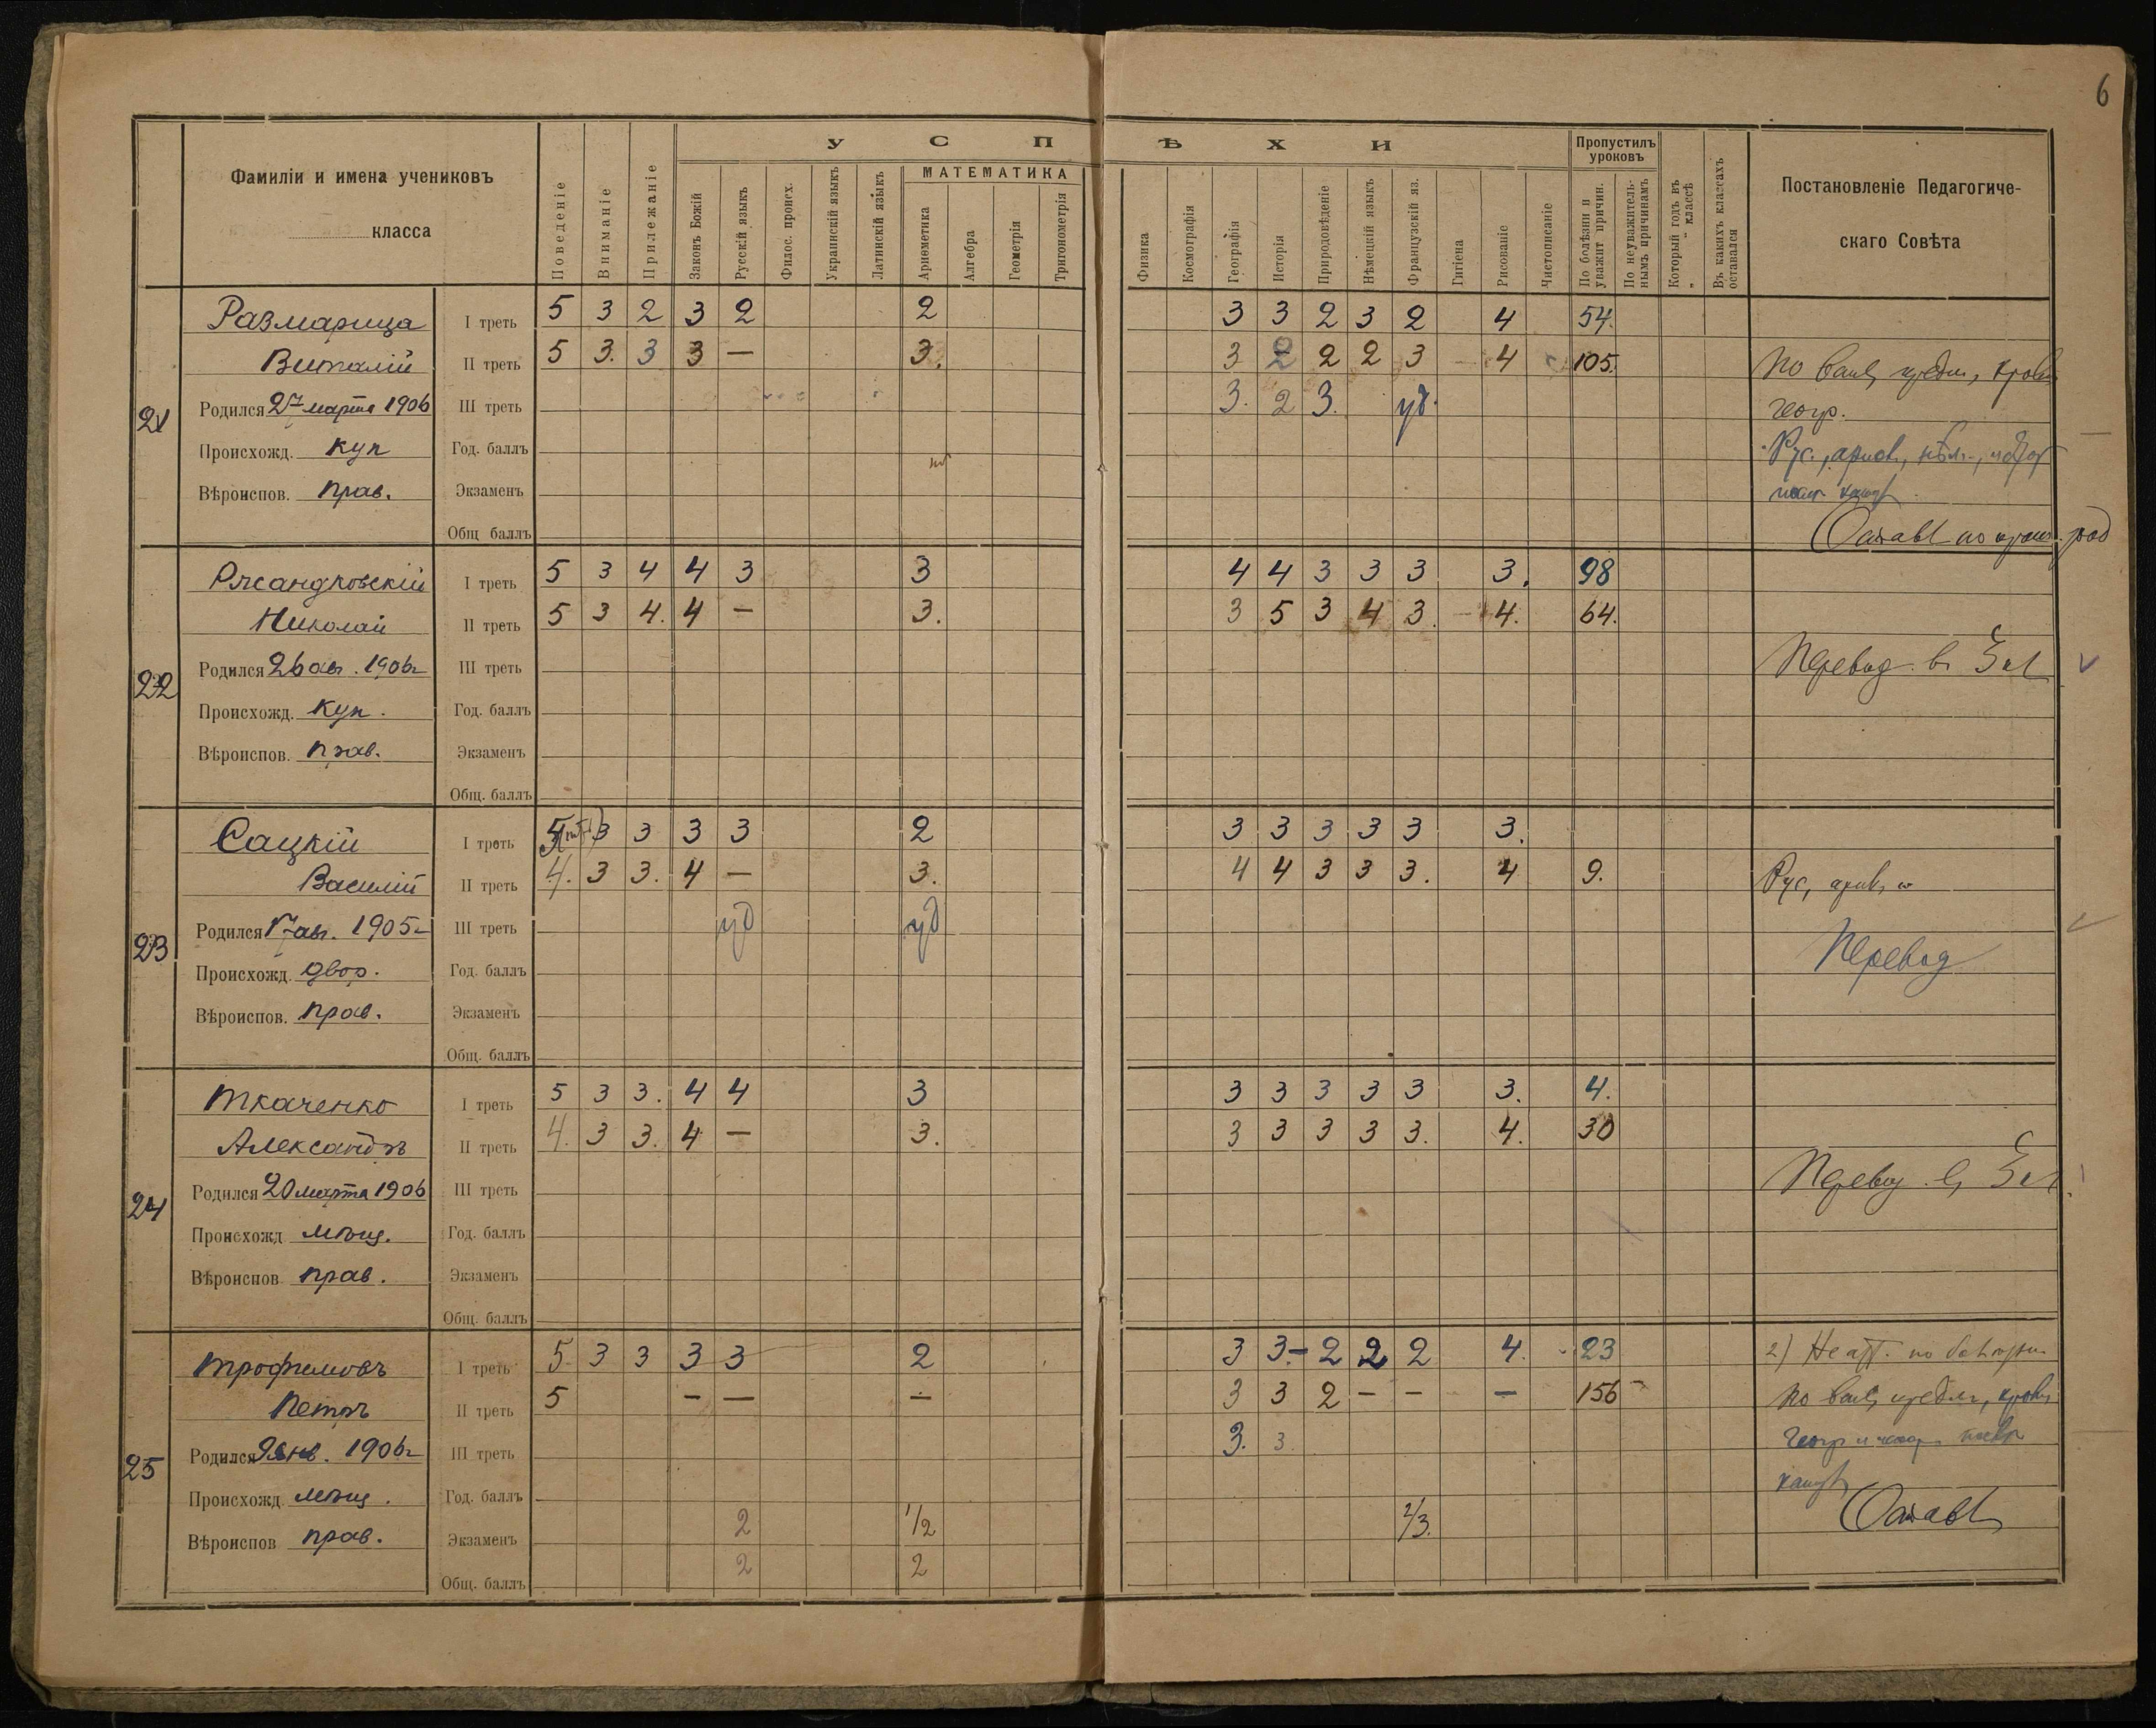 6
У С П Ѣ Х И
Фамиліи и имена учениковъ
класса
Поведеніе
Вниманіе
Прилежаніе
Законъ Божій
Русскій языкъ
Филос. происх.
Украинскій языкъ
Латинскій языкъ
МАТЕМАТИКА
Ариѳметика
Алгебра
Геометрія
Тригонометрія
Физика
Космографія
Географія
Исторія
Природовѣденіе
Нѣмецкій языкъ
Французскій яз.
Гигіена
Рисованіе
Чистописаніе
Пропустилъ
уроковъ
По болѣзни и
уважит причин.
По неуважитель-
нымъ причинамъ
Который годъ въ
„ „ классѣ
Въ какихъ классахъ
оставался
Постановленіе Педагогиче-
скаго Совѣта
21
Размарица I треть 5 3 2 3 2 2 3 3 2 3 2 4 54.
Виталій II треть 5 3. 3 3 — 3. 3 2 2 2 3 4 105.
Родился 27 марта 1906 III треть 3. 2 3. уд.
геогр.
Происхожд. куп Год. баллъ
Вѣроиспов. прав. Экзаменъ
Общ баллъ
22
Николай
I треть 5 3 4 4 3 3 4 4 3 3 3 3. 98
II треть 5 3 4. 4 — 3. 3 5 3 4 3. 4. 64.
Родился 26 авг. 1906 г III треть
Перевод. в
Происхожд. куп. Год. баллъ
Вѣроиспов. прав. Экзаменъ
Общ. баллъ
23
Сацкій I треть 5 3 3 3 3 2 3 3 3 3 3 3.
Василій II треть 4. 3 3. 4 — 3. 4 4 3 3 3. 4 9.
Рус,
Родился 17 авг. 1905 г III треть уд уд
Перевод
Происхожд. двор. Год. баллъ
Вѣроиспов. прав. Экзаменъ
Общ. баллъ
24
Ткаченко I треть 5 3 3. 4 4 3 3 3 3 3 3 3. 4.
Александръ II треть 4. 3 3. 4 — 3. 3 3 3 3 3. 4. 30
Родился 20 марта 1906 III треть
Происхожд мѣщ. Год. баллъ
Вѣроиспов прав. Экзаменъ
Общ. баллъ
25
Трофимовъ I треть 5 3 3 3 3 2 3 3. — 2 2 2 4. 23
Петръ II треть 5 — — — 3 3 2 — — — 156
Родился 9 янв. 1906 г III треть 3. 3
Происхожд. мѣщ. Год. баллъ
Вѣроиспов прав. Экзаменъ 2 1/2 2/3.
Оставл
Общ. баллъ 2 2